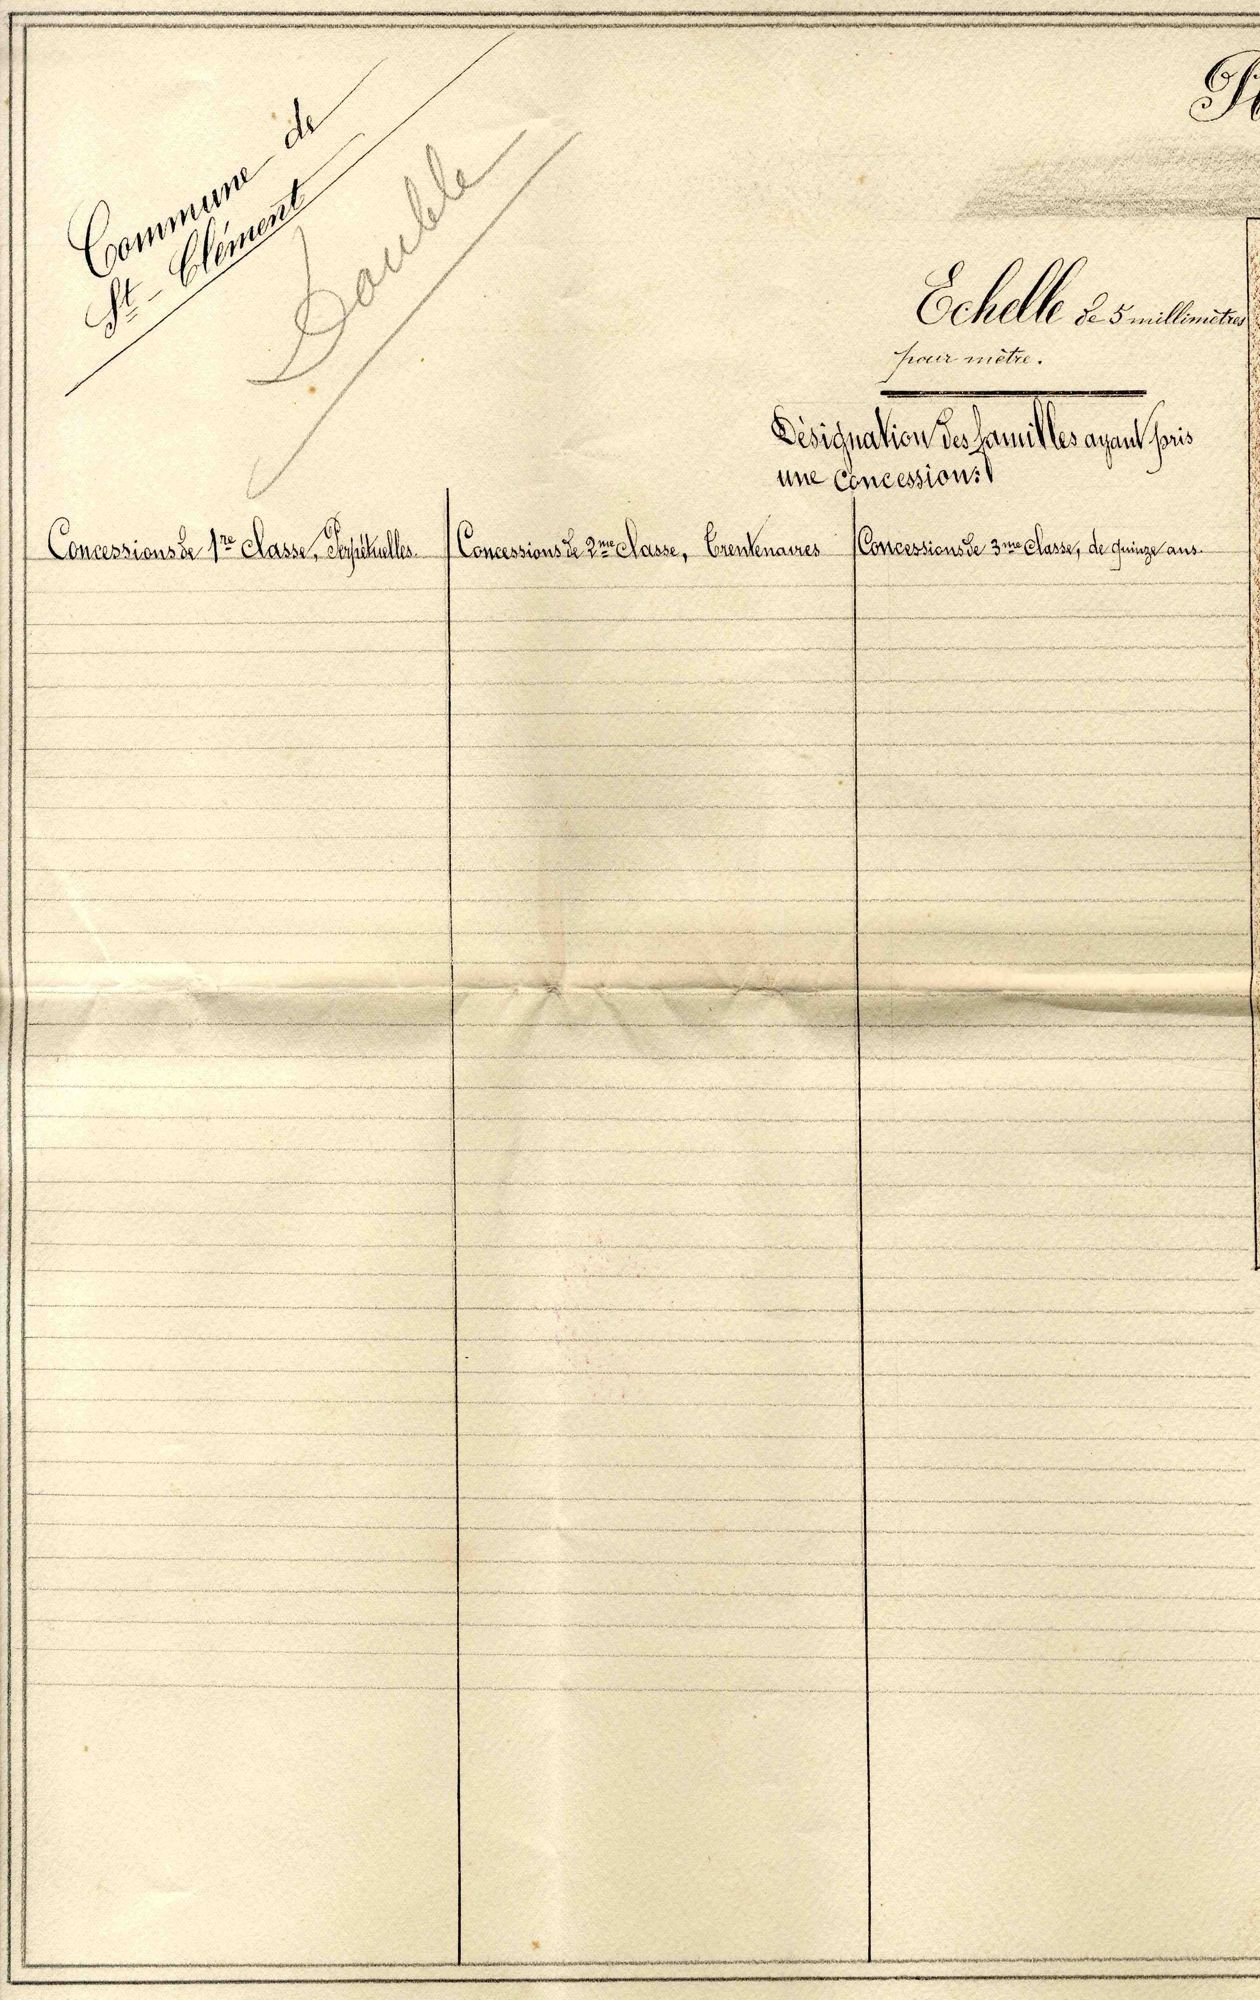 Commune de
St - Clément
Double
Echelle de 5 millimètres
pour mètre.
Désignation des familles ayant pris
une concession:
Concessions de 1re Classe, Perpétuelles.
Concessions de 2me Classe, Trentenaires
Concessions de 3me Classe, de quinze ans.